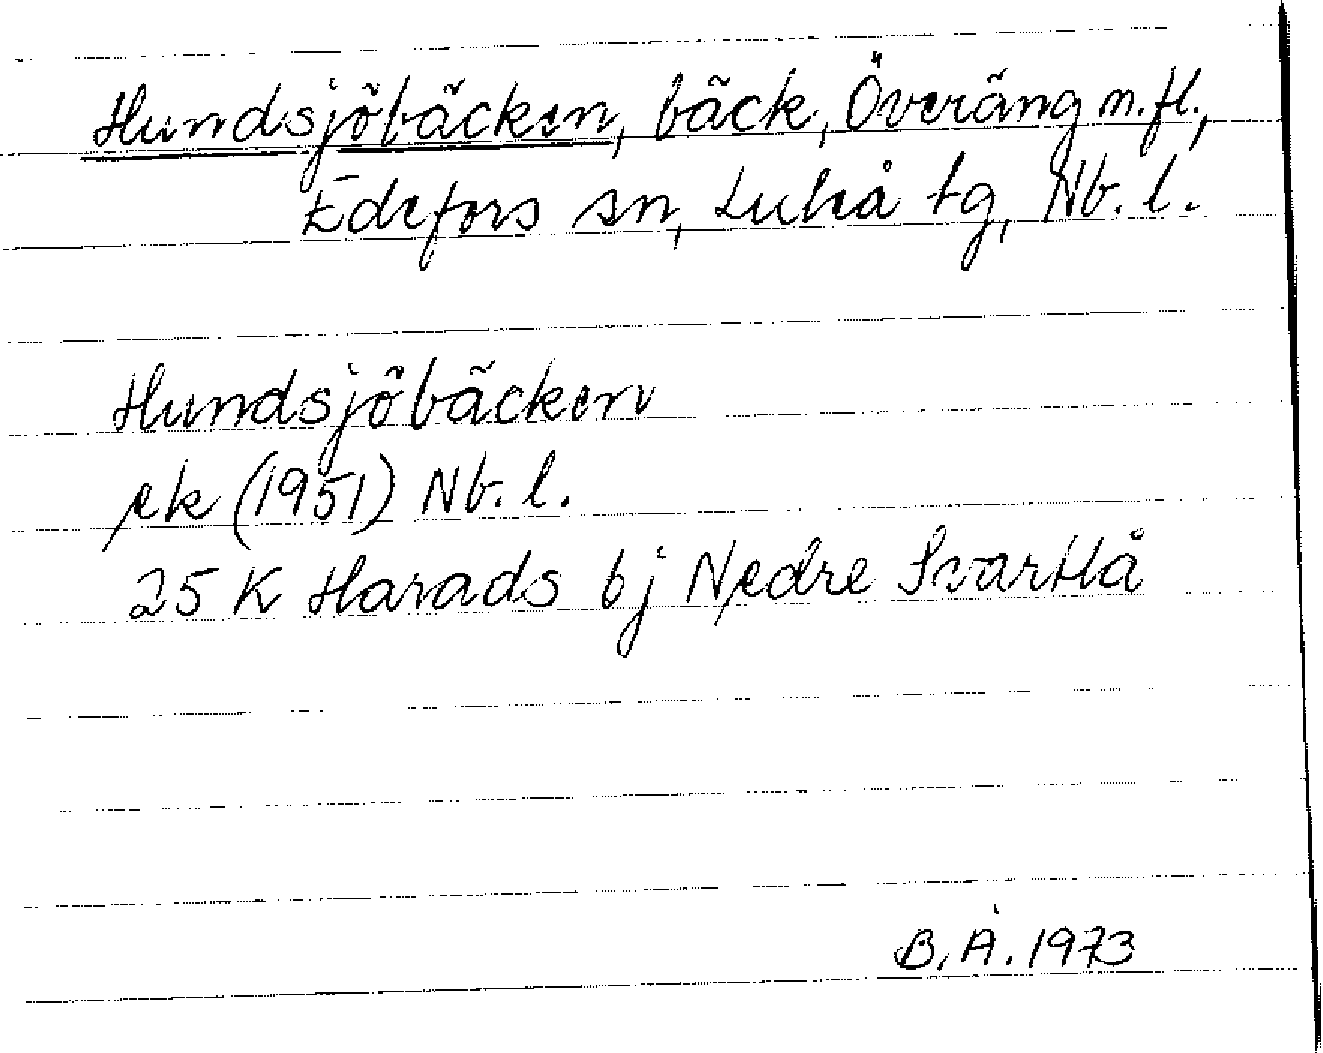 Hundsjöbäcken, bäck, Överäng m.fl.,
Edefors sn, Luleå tg, Nb. l.
Hundsjöbäcken
ek (1951) Nb. l.
25 K Harads bj Nedre Svartlå
B.Å. 1973